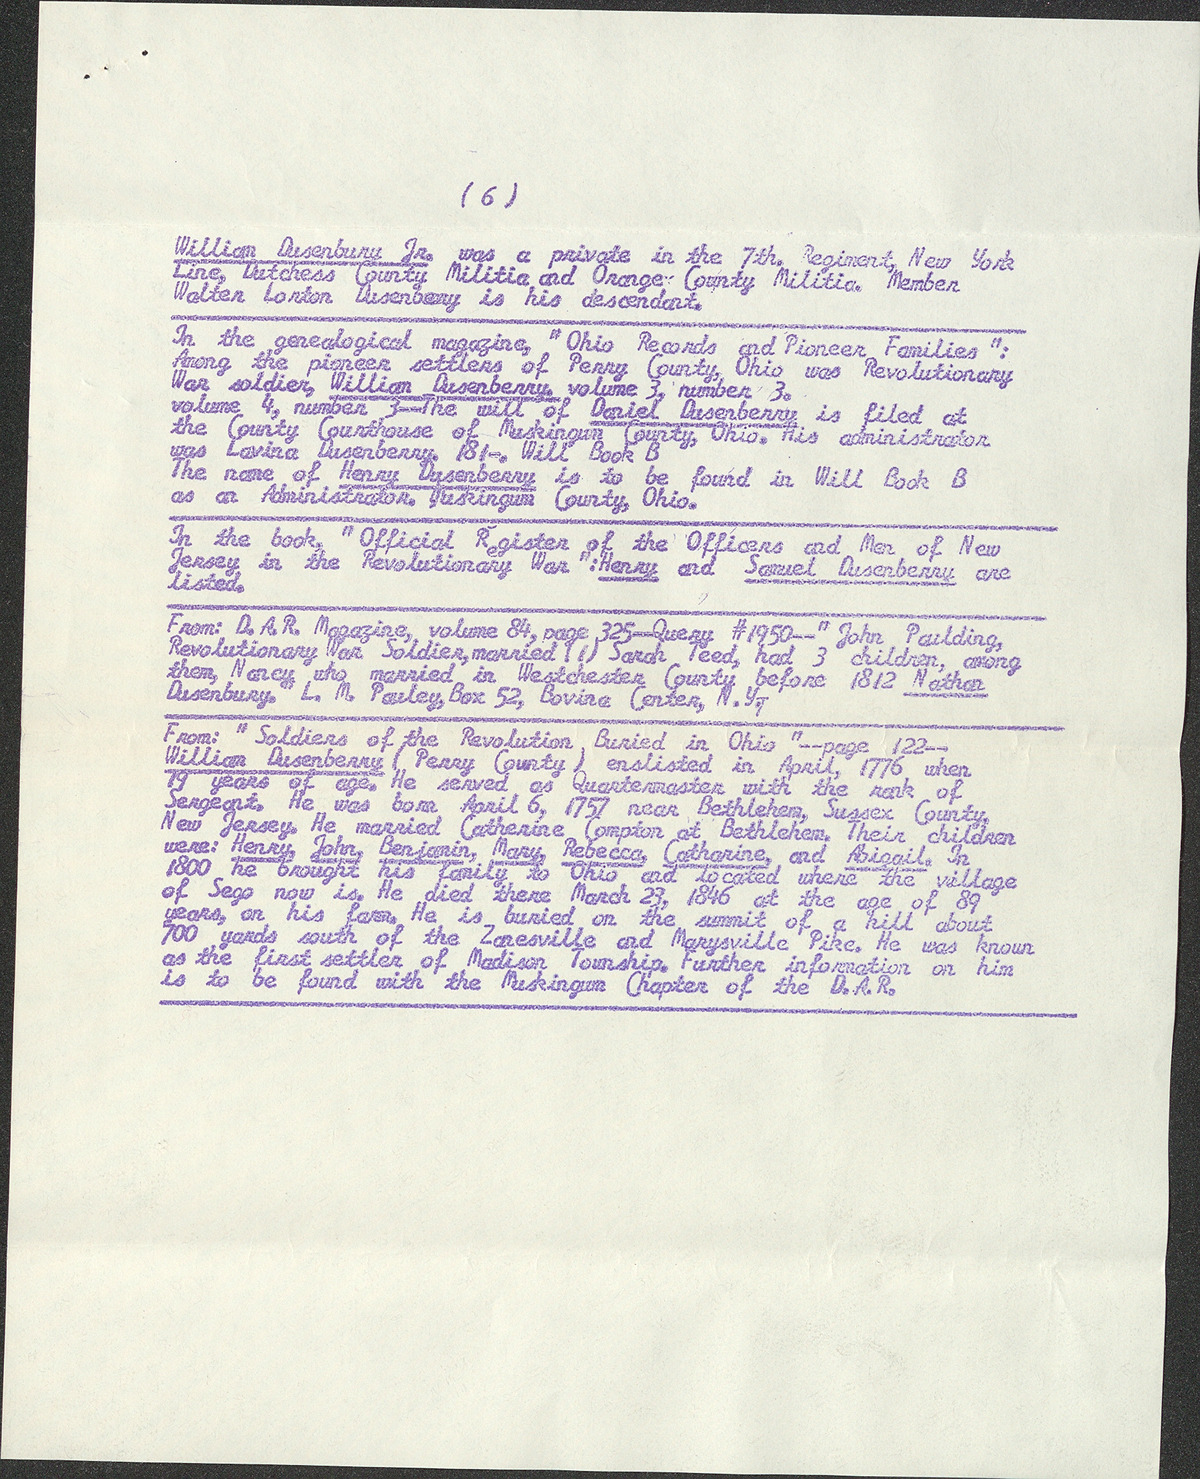 (6)
William Dusenbury Jr. was a private in the 7th. Regiment, New York
Line, Dutchess County Militia and Orange County Militia. Member
Walter Lorton Dusenberry is his descendant.
In the genealogical magazine, "Ohio Records and Pioneer Families":
Among the pioneer settlers of Perry County, Ohio was Revolutionary
War soldier, William Dusenberry. volume 3, number 3.
volume 4, number 3--The will of Daniel Dusenberry is filed at
the County Courthouse of Muskingum County, Ohio. His administrator
was Lavina Dusenberry. 181-. Will Book B
The name of Henry Dusenberry is to be found in Will Book B
as an Administrator. Muskingum County, Ohio.
In the book, "Official Register of the Officers and Men of New
Jersey in the Revolutionary War":Henry and Samuel Dusenberry are
listed.
From: D.A.R. Magazine, volume 84, page 325--Query #1950--"John Paulding,
Revolutionary War Soldier, married (1) Sarah Teed, had 3 children, among
them, Nancy who married in Westchester County before 1812 Nathan
Dusenbury." L. M. Pauley, Box 52, Bovina Center, N.Y.
From: "Soldiers of the Revolution Buried in Ohio"--page 122--
William Dusenberry (Perry County) enslisted in April, 1776 when
19 years of age. He served as Quartermaster with the rank of
Sergeant. He was born April 6, 1757 near Bethlehem, Sussex County,
New Jersey. He married Catherine Compton at Bethlehem. Their children
were: Henry, John, Benjamin, Mary, Rebecca, Catharine, and Abigail. In
1800 he brought his family to Ohio and located where the village
of Sego now is. He died there March 23, 1846 at the age of 89
years, on his farm. He is buried on the summit of a hill about
700 yards south of the Zanesville and Marysville Pike. He was known
as the first settler of Madison Township. Further information on him
is to be found with the Muskingum Chapter of the D.A.R.